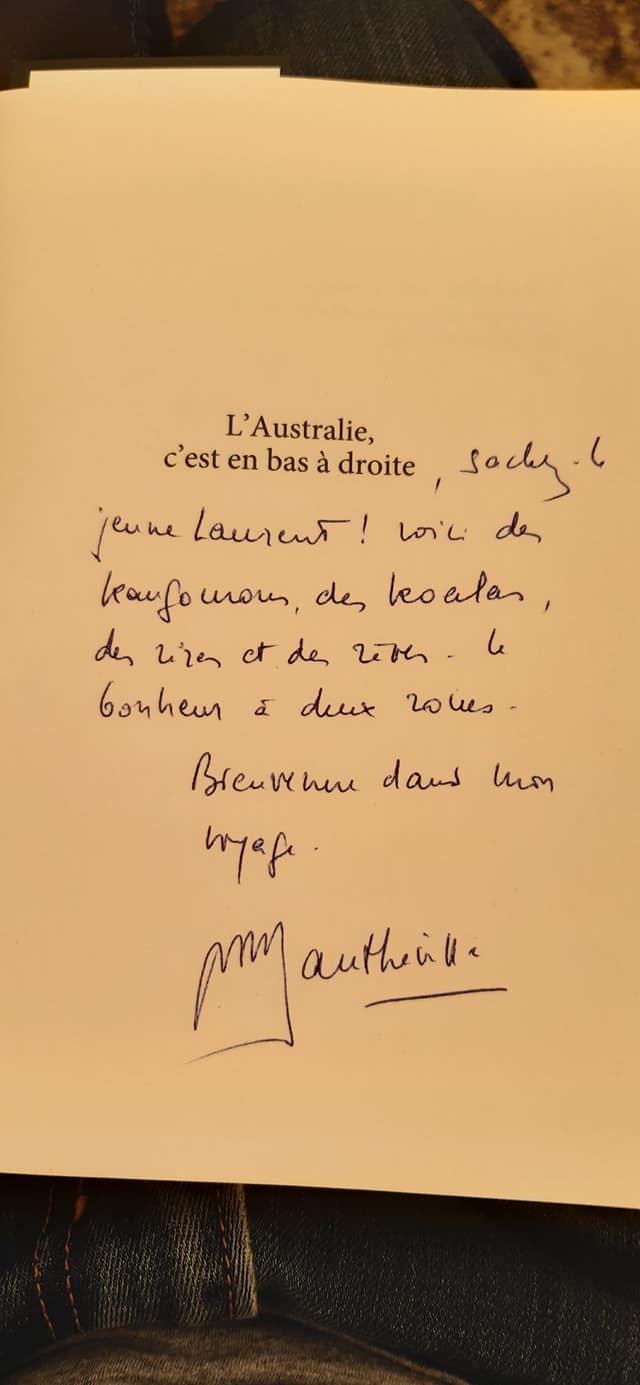 L'Australie,
c'est en bas à droite, sachez-le
jeune Laurent ! Voici des
kangourous, des koalas,
des rires et des rêves. Le
bonheur à deux roues.
Bienvenue dans mon
voyage.